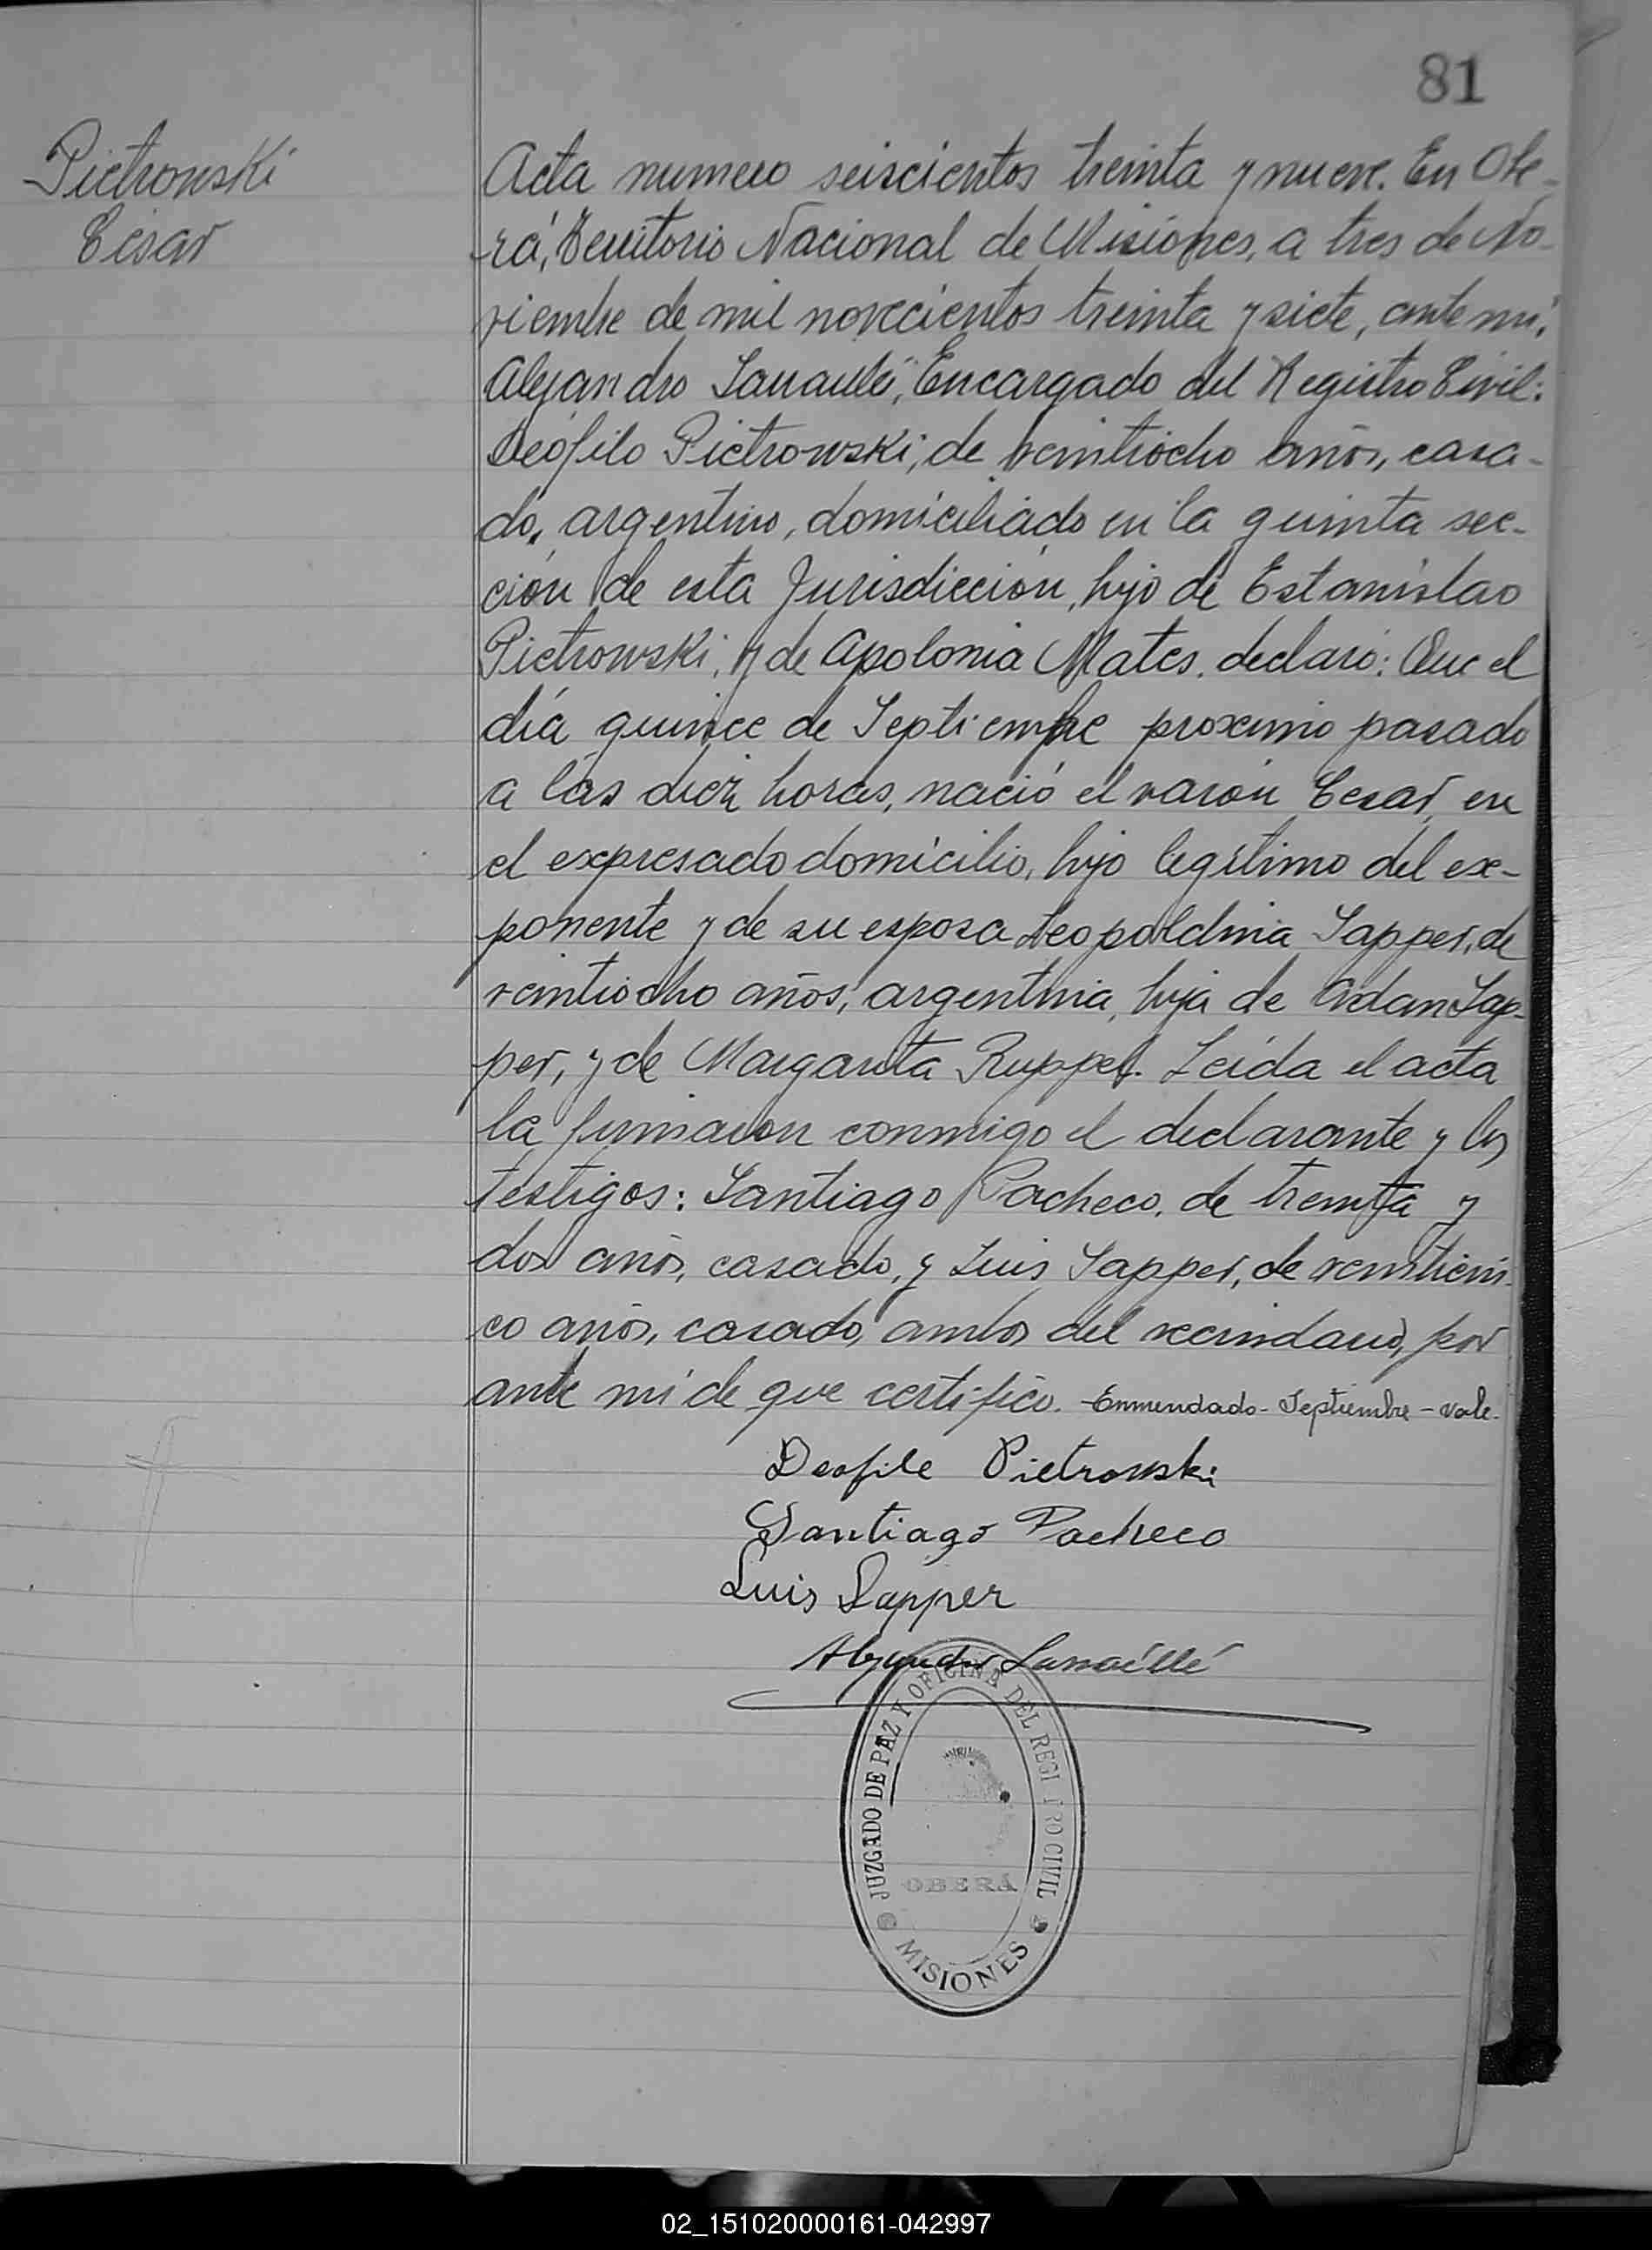 81
Pietrowski
Cesar
Acta numero seiscientos treinta y nueve. En Obe-
rá, Territorio Nacional de Misiones, a tres de No-
viembre de mil novecientos treinta y siete, ante mi,
Alejandro Encargado del Registro Civil:
Deófilo Pietrowski, de veintiocho años, casa-
do, argentino, domiciliado en la quinta sec-
ción de esta Jurisdicción, hijo de Estanislao
Pietrowski, y de Apolonia Mates, declaró: Que el
día quince de Septiembre proximo pasado
a las diez horas, nació el varón Cesar, en
el expresado domicilio, hijo legítimo del ex-
ponente y de su esposa Leopoldina Sapper, de
veintiocho años, argentina, hija de Adan Sap-
per, y de Margarita Ruppel. Leída el acta
la firmaron conmigo el declarante y los
testigos: Santiago Pacheco, de treinta y
dos años, casado, y Luis Sapper, de veinticin-
co años, casado, ambos del vecindario, por
ante mi de que certifico. -Enmendado- Septiembre - vale.
Deofile Pietrowski
Santiago Pacheco
Luis Sapper
Alejandro
JUZGADO DE PAZ Y OFICINA DEL REGI TRO CIVIL
OBERÁ
MISIONES
02_151020000161-042997